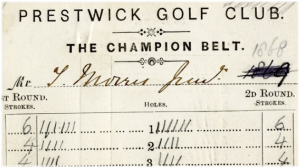 PRESTWICK GOLF CLUB.
THE CHAMPION BELT.
1868
Mr T. Morris Junr. 1869
1ST ROUND. 2D ROUND.
STROKES. HOLES. STROKES.
6 1 6
4 2 4
4 3